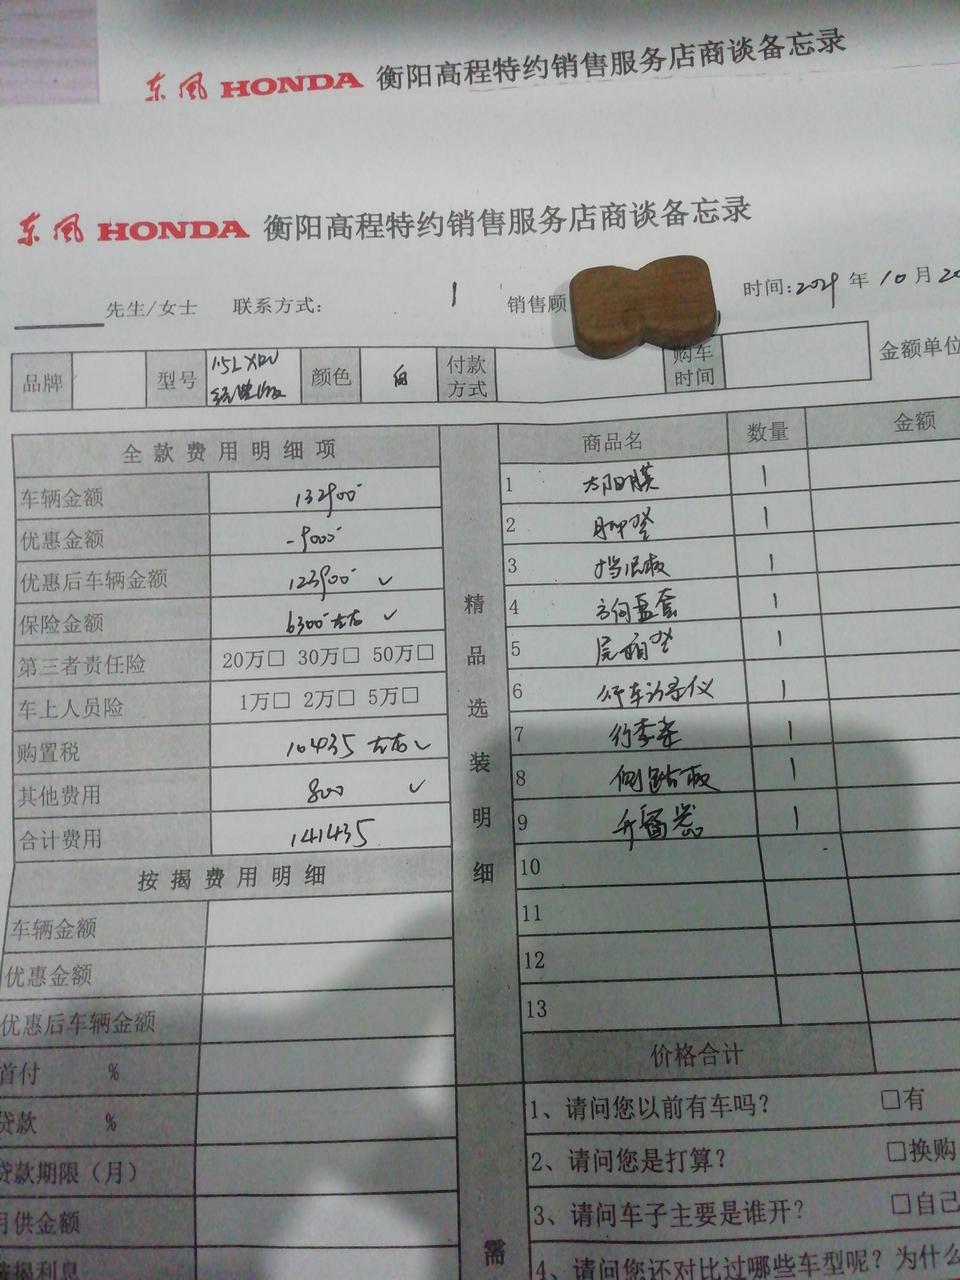 东风 HONDA 衡阳高程特约销售服务店商谈备忘录
东风 HONDA 衡阳高程特约销售服务店商谈备忘录
先生/女士 联系方式: 销售顾 时间: 年 10 月 20
品牌 型号 1.5L 颜色 白 付款方式 购车时间 金额单位
全款费用明细项
车辆金额 132900
优惠金额 -9000
优惠后车辆金额 123900 ✓
保险金额 6300左右 ✓
第三者责任险 20万□ 30万□ 50万□
车上人员险 1万□ 2万□ 5万□
购置税 10435左右 ✓
其他费用 800 ✓
合计费用 141435
按揭费用明细
车辆金额
优惠金额
优惠后车辆金额
首付 %
贷款 %
贷款期限（月）
月供金额
按揭利息
精品选装明细
商品名 数量 金额
1 太阳膜 1
2 脚垫 1
3 挡泥板 1
4 方向盘套 1
5 尾箱垫 1
6 行车记录仪 1
7 行李架 1
8 侧踏板 1
9 1
10
11
12
13
价格合计
需
1、请问您以前有车吗？ □有
2、请问您是打算？ □换购
3、请问车子主要是谁开？ □自己
4、请问您还对比过哪些车型呢？为什么